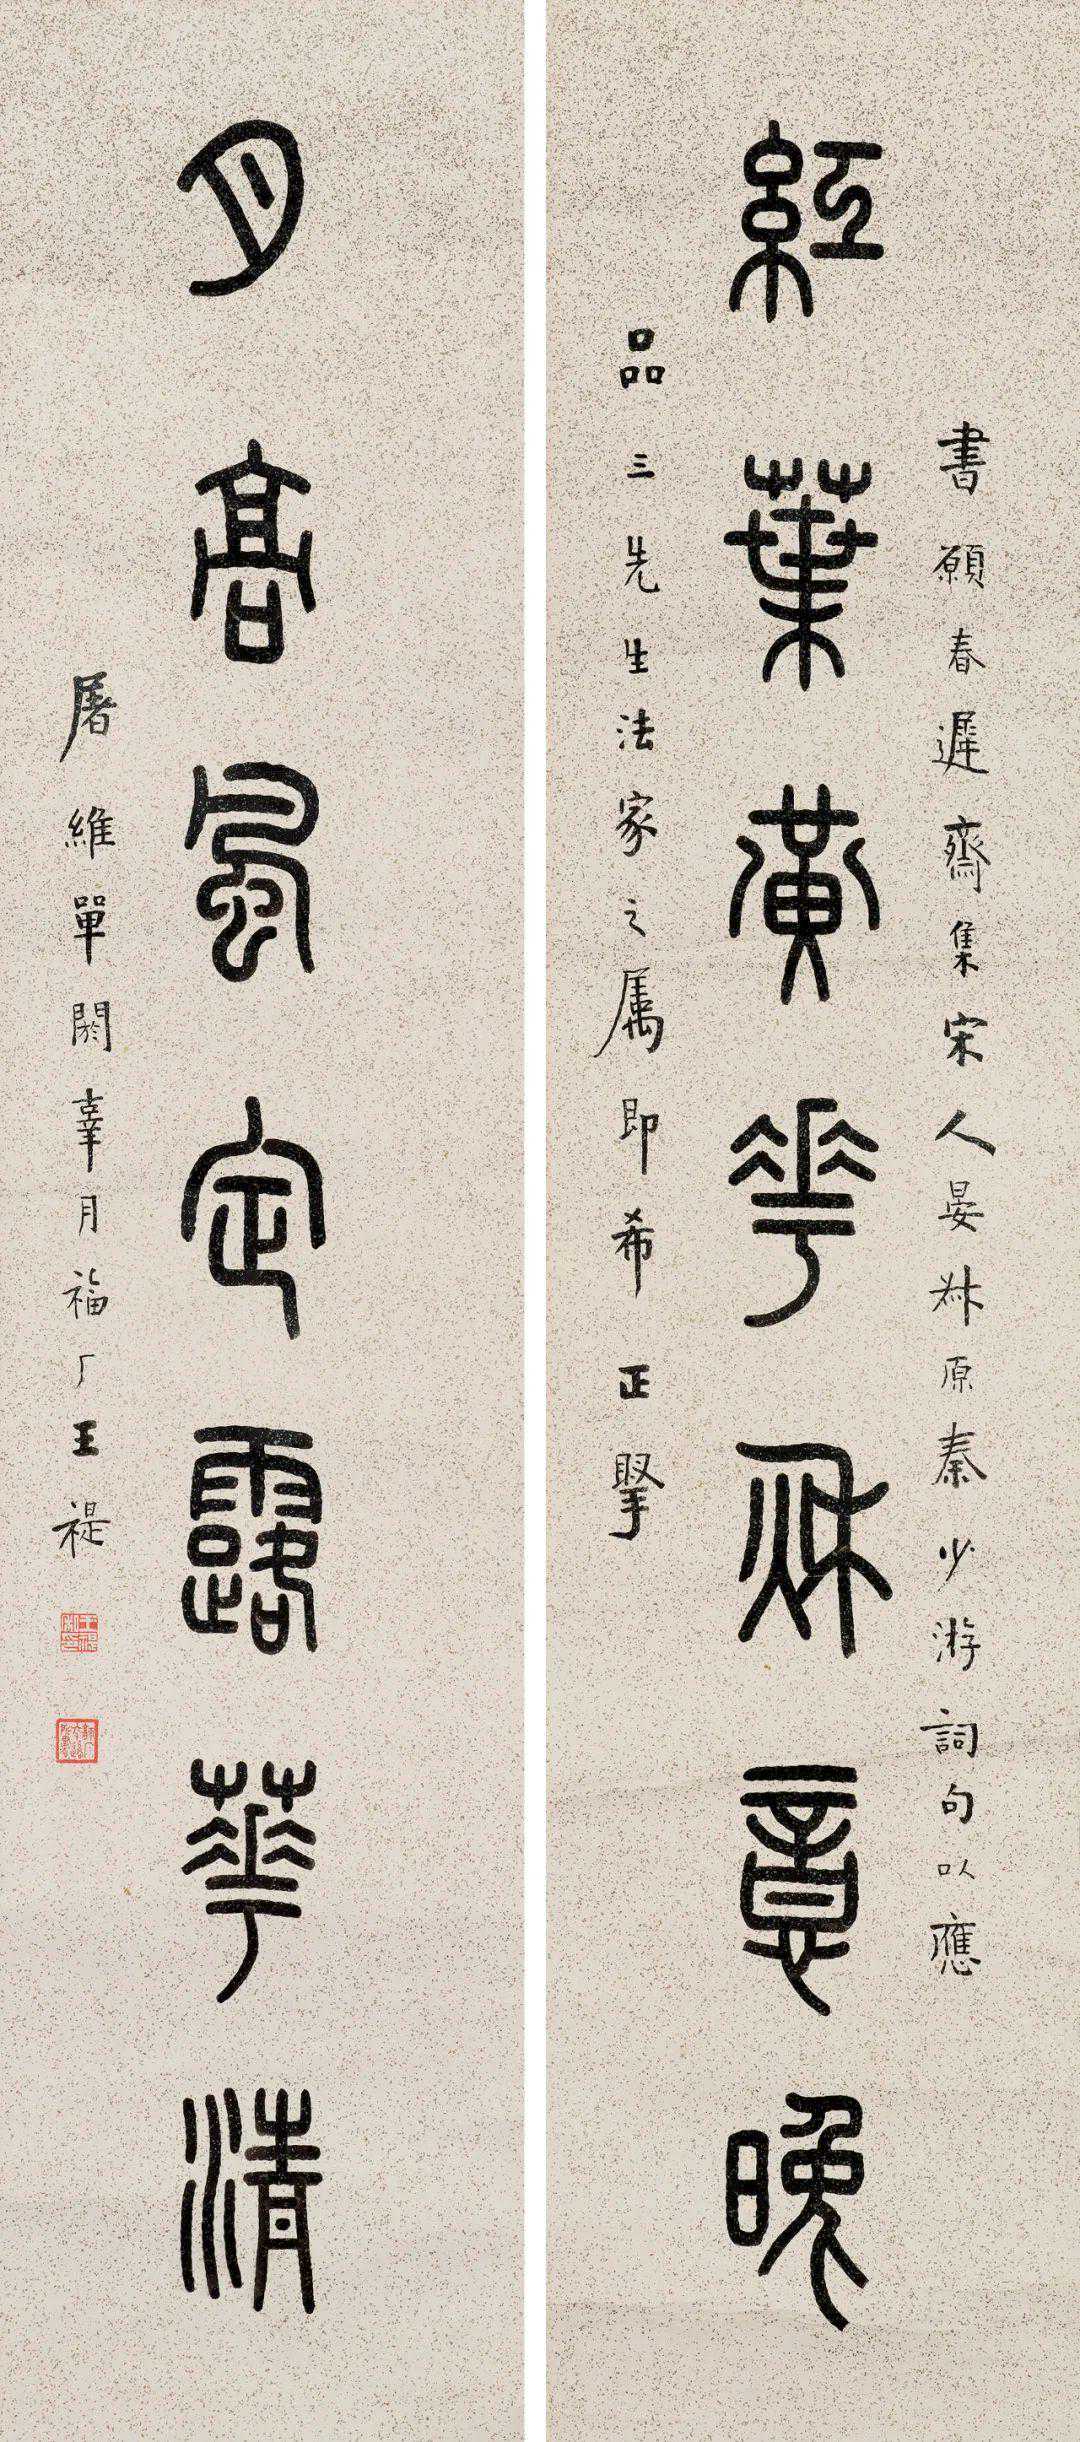 書願春遲齋集宋人晏叔原秦少游詞句以應
紅葉黃花秋意晚
品三先生法家之属即希正擘
月高風定露華清
屠維單閼辜月福厂王禔